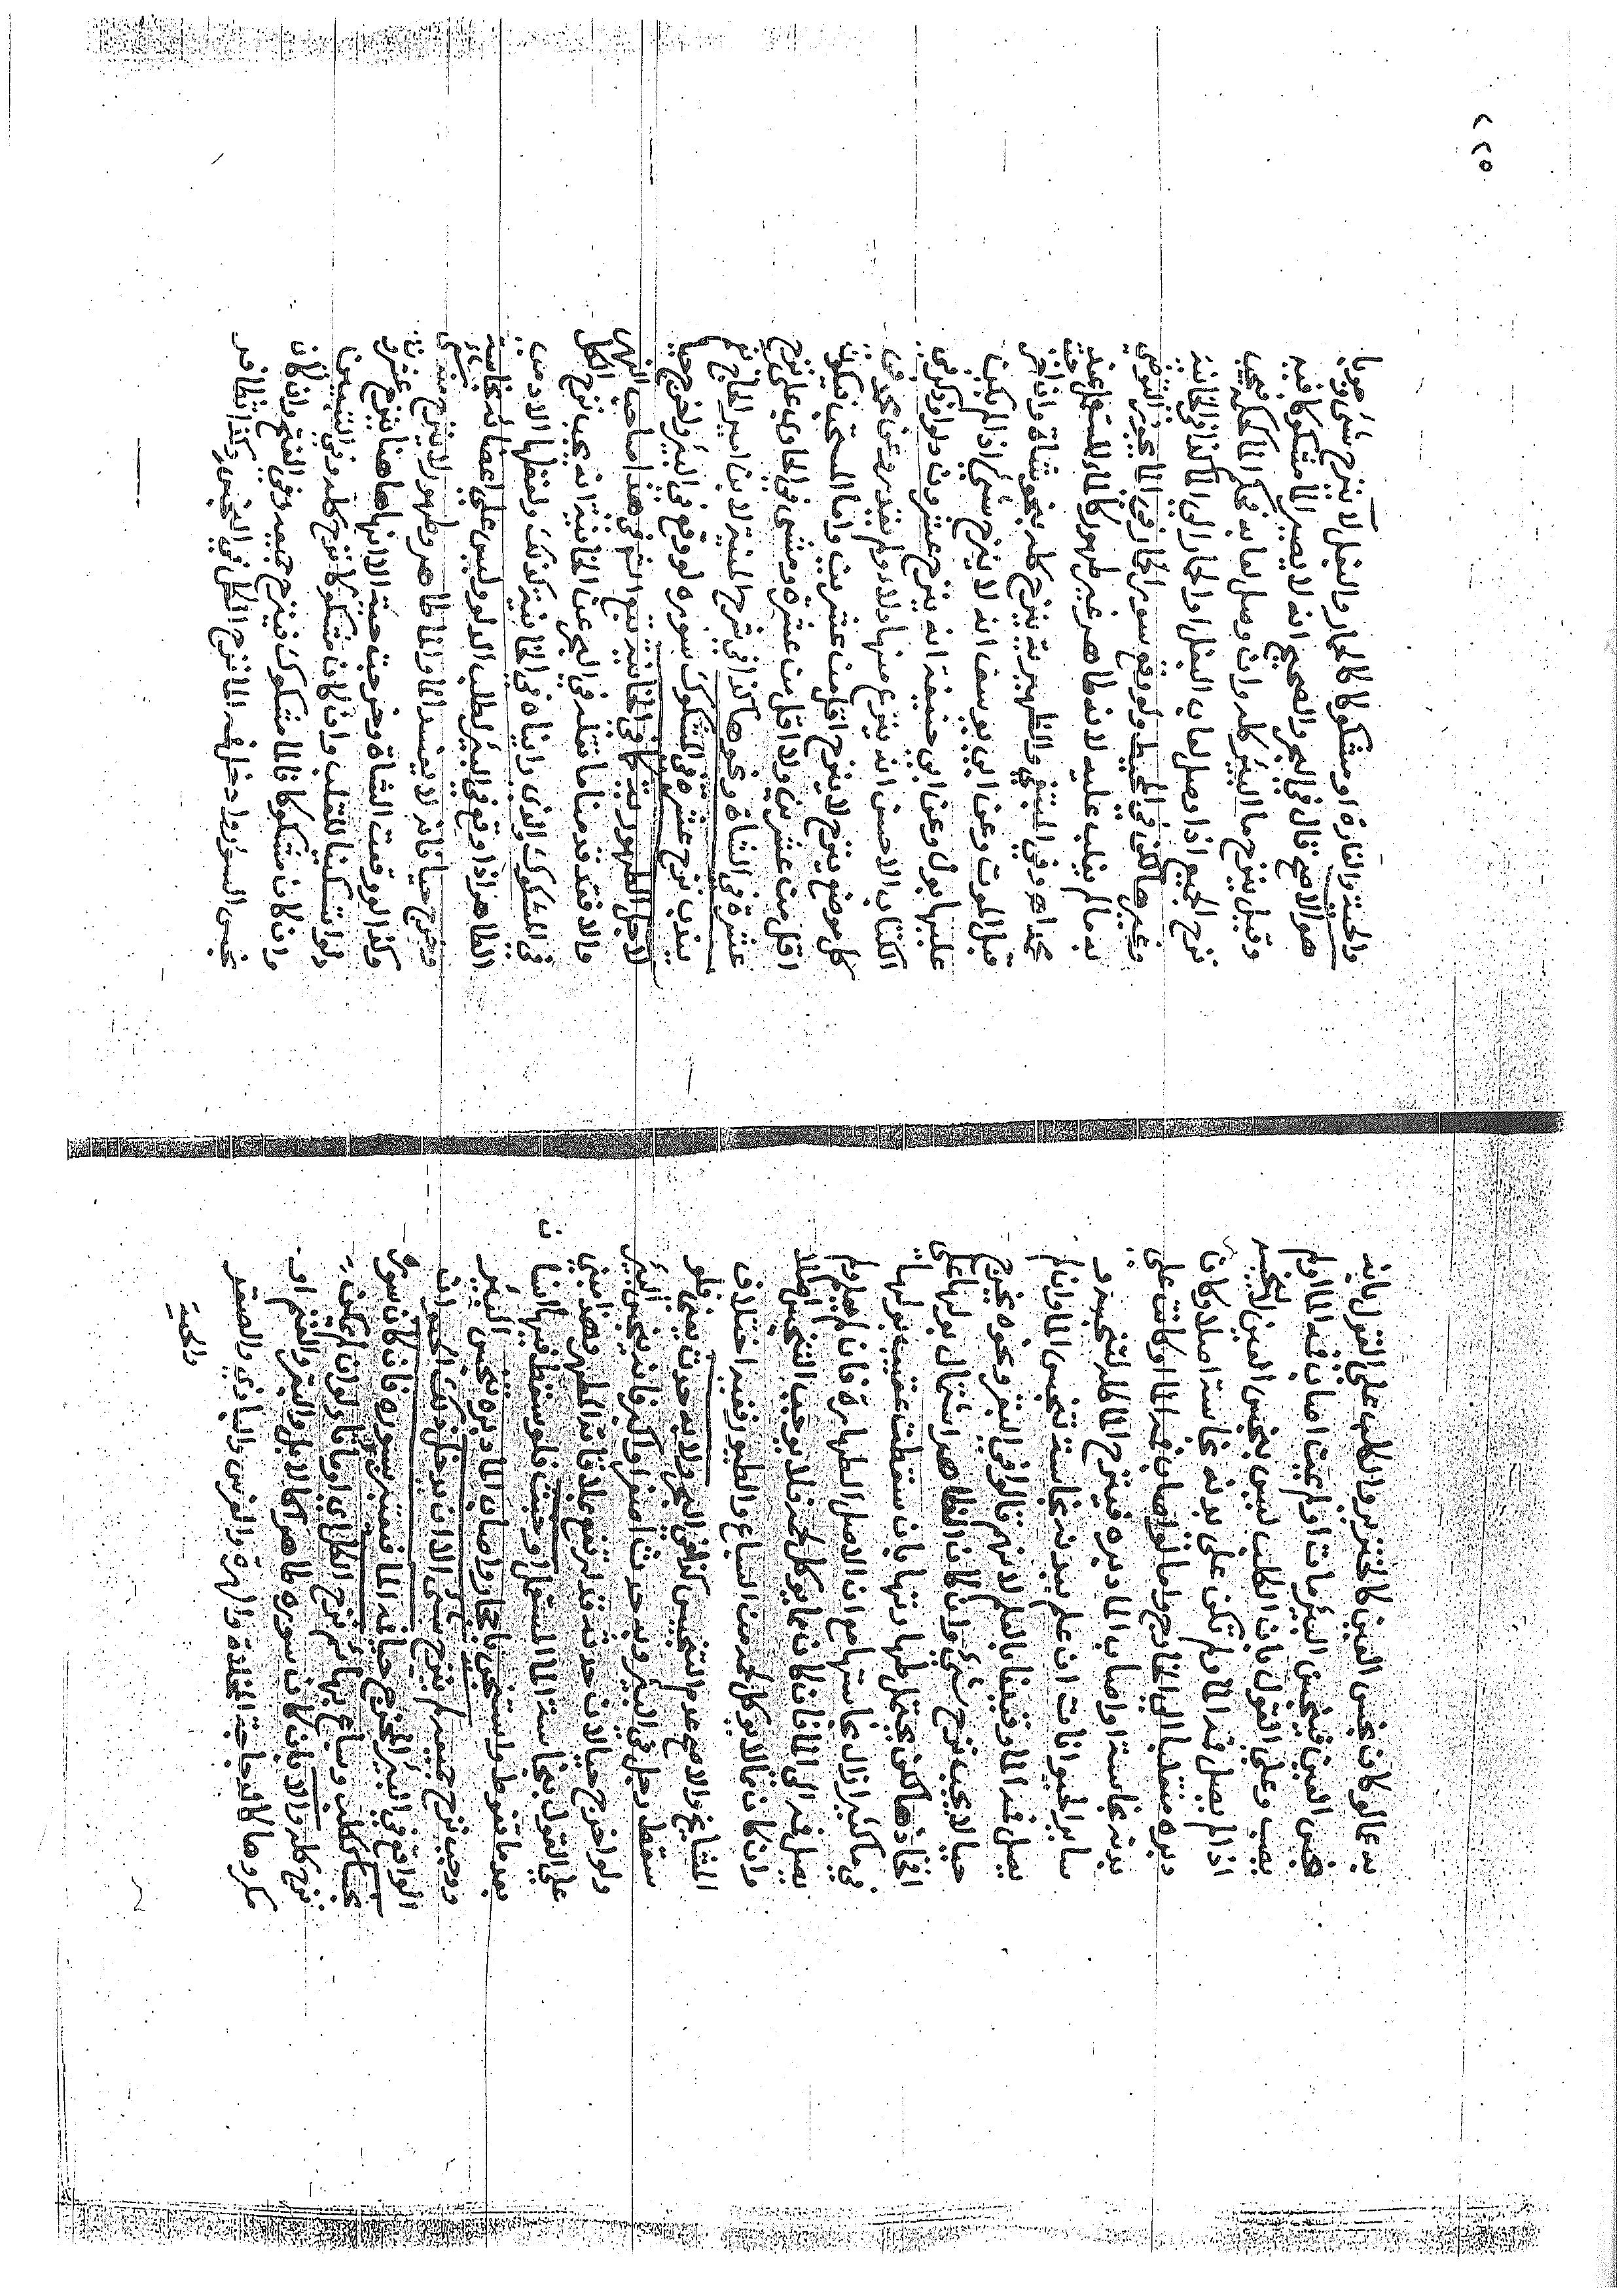 به عما لو كان نجس العين كالخنزير والكلب على القول بانه
نجس العين فينجس البئر مات اولم يمت اصاب فمه الماء اولم
يصب وعلى القول بان الكلب ليس بنجس العين لا ينجسه
اذا لم يصل فمه الماء ولم تكن على بدنه نجاسة اصلا وكان
دبره منقلبا الى الخارج واما لو اصاب فمه الماء او كانت على
بدنه نجاسة او اصاب الماء دبره فينزح الماء كله لتنجسه و
ساير الحيوانات ان علم ببدنه نجاسة تنجس الماء وان لم
يصل فمه الماء وقيدنا بالعلم لانهم قالوا في البقر ونحوه يخرج
حيا لا يجب نزح شيء وان كان الظاهر اشتمال بولها على
افخاذها لكن يحتمل طهارتها بان سقطت عقيب بولها
في ماء كثير ازال نجاستها مع ان الاصل الطهارة فان لم يعلم ولم
يصل فمه الى الماء فان كان مما يوكل لحمه فلا يوجب التنجيس اصلا
وان كان مما لا يوكل لحمه من السباع والطيور ففيه اختلاف
المشايخ والاصح عدم التنجيس كذا في البحر ولا به حدث يعني فلو
سقط رجل في البئر وبه حدث اصغر او اكبر فانه ينجس البئر
ولو اخرج حيا لان حدثه قد ارتفع بملاقاته المطهر وهذا مبني
على القول بنجاسة الماء المستعمل او خبث فلو سقط فيها انسان
بعد ما تغوط واستنجى باحجار واصاب الماء دبره تنجس البئر
ووجب نزح جميعه لم ينزح شيء الا ان يدخل ذلك الحيوان
الواقع في البئر المخرج حيا فمه الماء فيعتبر بسوره فان كان سوره
نجسا ككلب وسباع بهائم نزح الكل اي
نزح كله والا بان كان سوره طاهرا كالابل والبقر والغنم او
مكروها كالدجاجة المخلاة والهرة والفرس والبازي والصقر
والحية
٥٢
والحية والفارة او مشكوكا كالحمار والبغل لا ينزح شيء وجوبا
هو الاصح قال في البحر والصحيح انه لا يصير الماء مشكوكا فيه
وقيل ينزح ماء البئر كله وان وصل لعابه فحكم الماء كحكمه فيجب
نزح الجميع اذا وصل لعاب البغل او الحمار الى الماء كذا في الخانية
وغيرها لكن في المحيط ولو وقع سور الحمار في الماء يجوز التوضي
به ما لم يغلب عليه لانه طاهر غير طهور كالماء المستعمل عند
محمد اهـ وفي المبتغى والظهيرية ينزح كله بنحو شاة وان اخرجت
قبل الموت وعن ابي يوسف انه لا ينزح شيء اذا لم يكن
عليها بول وعن ابي حنيفة انه ينزح عشرون دلوا وذكر في
الكتاب الاحسن ان ينزع منها دلاء ولم يقدر وعن محمد في
كل موضع ينزح لا ينزح اقل من عشرين واما المستحب فيكون
اقل من عشرين ولا اقل من عشرة ومشى في الحاوي على نزح
عشرة في الشاة ونحوها كذا في شرح المنية لابن امير الحاج ثم
يندب نزح عشرة في المشكوك سوره لو وقع في البئر واخرج حيا
لاجل الطهورية كما في الخانية تبع الشيخ في هذا صاحب النهر
والا فقد قدمنا ما نقله في البحر عن الخانية انه يجب نزح الكل
في المشكوك والذي رايناه في الخانية كذلك ولفظها الادمي
الطاهر اذا وقع في البئر لطلب الدلو وليس على اعضائه نجاسة
وخرج حيا فانه لا يفسد الماء والماء طاهر وطهور لا ينزح منه شيء
وكذا لو وقعت الشاة وخرجت حية الا انها هاهنا ينزح عشرون
دلوا تسكينا للقلب وان كان مشكوكا نزح كله وفي التبيين
وان كان مشكوكا فالماء مشكوك فينزح جميعه وفي الفتح وان كان
نجس السؤر وادخل فمه الماء نزح الكل في النجس وكذا تظافر